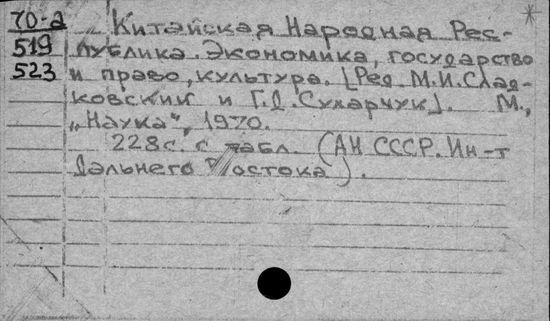 70-2 Китайская Народная Рес-
519 публика. Экономика, государство
523 и право, культура. [Ред. М.И. Слад-
ковский и Г.Д. Сухарчук]. М.,
„Наука“, 1970.
228с. с табл. (АН СССР. Ин-т
Дальнего Востока).